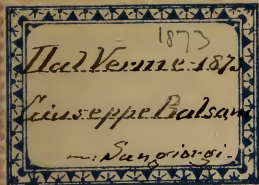 1873
Dal Verme - 1873
Giuseppe Balsam
m: Sangiorgi.